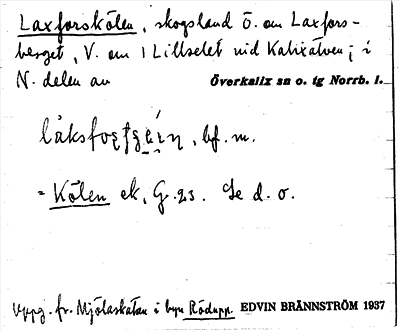 Laxforskölen, skogsland Ö. om Laxfors-
berget, V. om Lillselet vid Kalixälven; i
N. delen av Överkalix sn o. tg Norrb. l.
, bf. m.
= Kölen ek, G. 23. Se d. o.
Uppg. fr. Mjölaskatan i byn Rödupp. EDVIN BRÄNNSTRÖM 1937